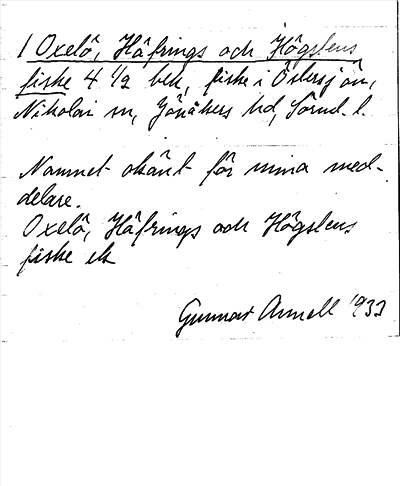 1 Oxelö, Häfrings och Högstens
fiske 4 1/2 bek, fiske i Östersjön,
Nikolai sn, Jönåkers hd, Sörml. l.
Namnet okänt för mina med-
delare.
Oxelö, Häfrings och Högstens
fiske ek
Gunnar Arnell 1933